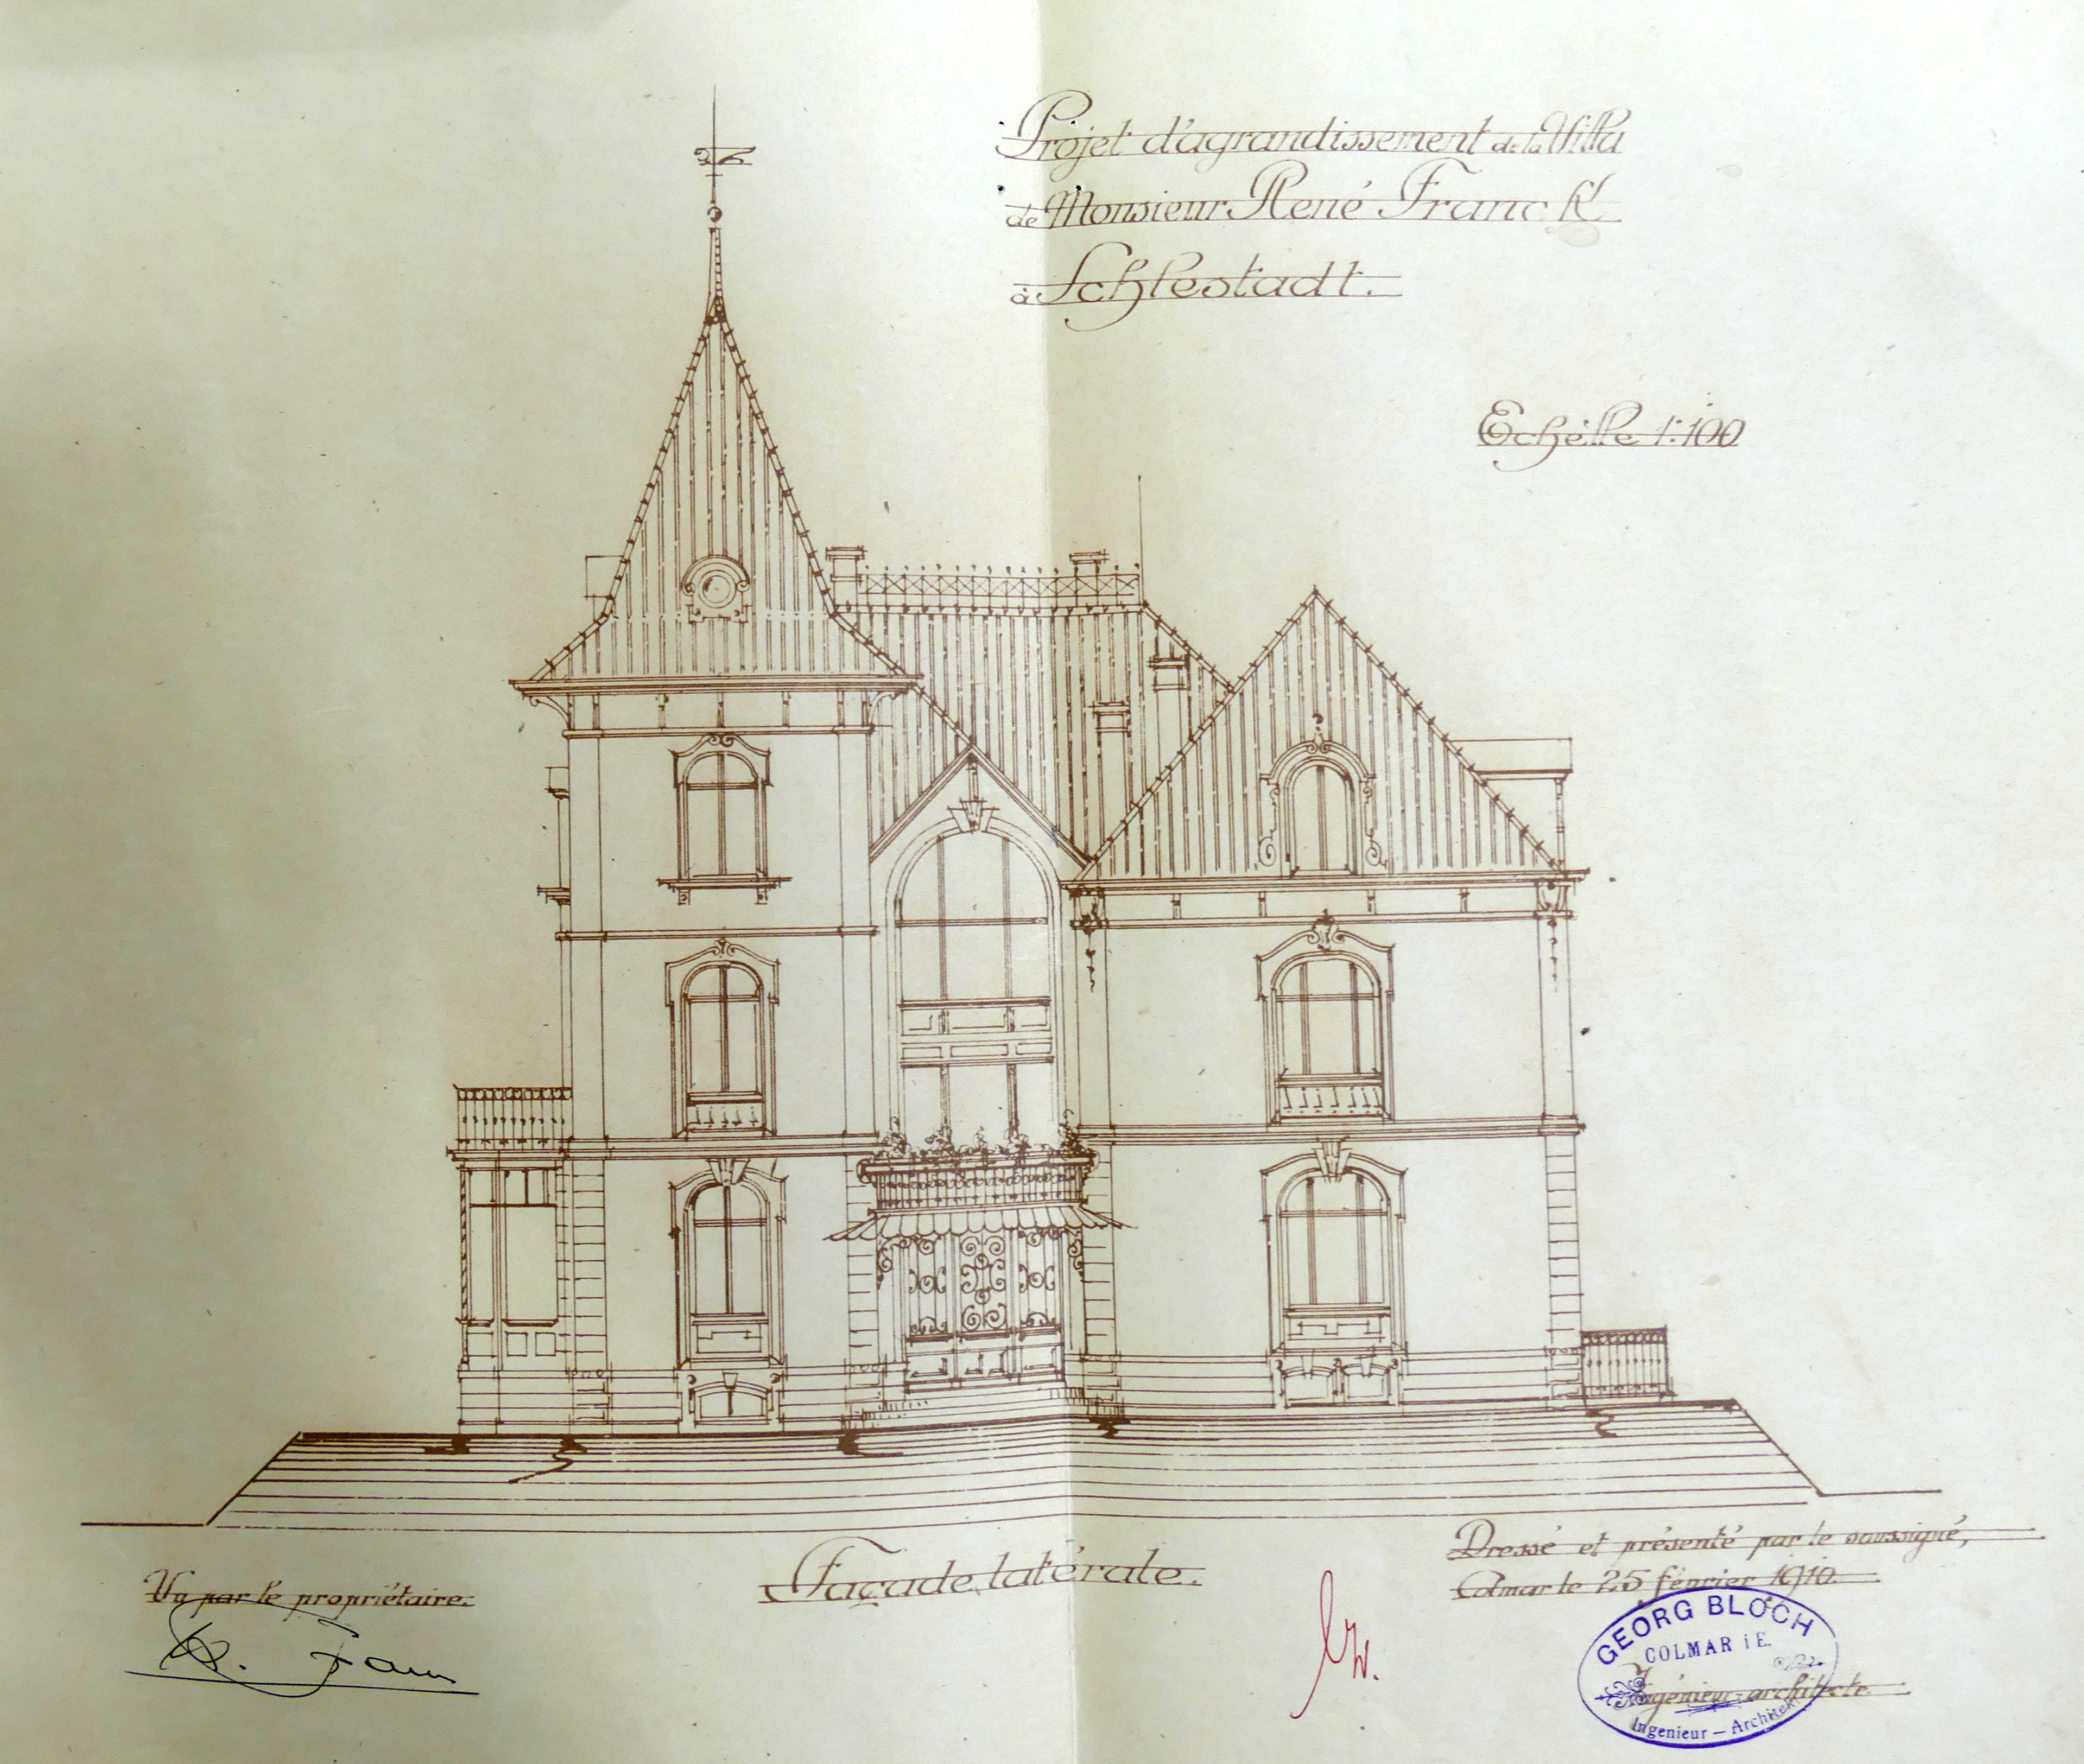 Projet d'agrandissement de la Villa
de Monsieur René Franck
à Schlestadt.
Echelle 1:100
Façade latérale.
Vu par le propriétaire:
Dressé et présenté par le soussigné,
Colmar le 25 février 1910.
GEORG BLOCH
COLMAR i E.
Ingénieur-architecte
Ingenieur – Architekt